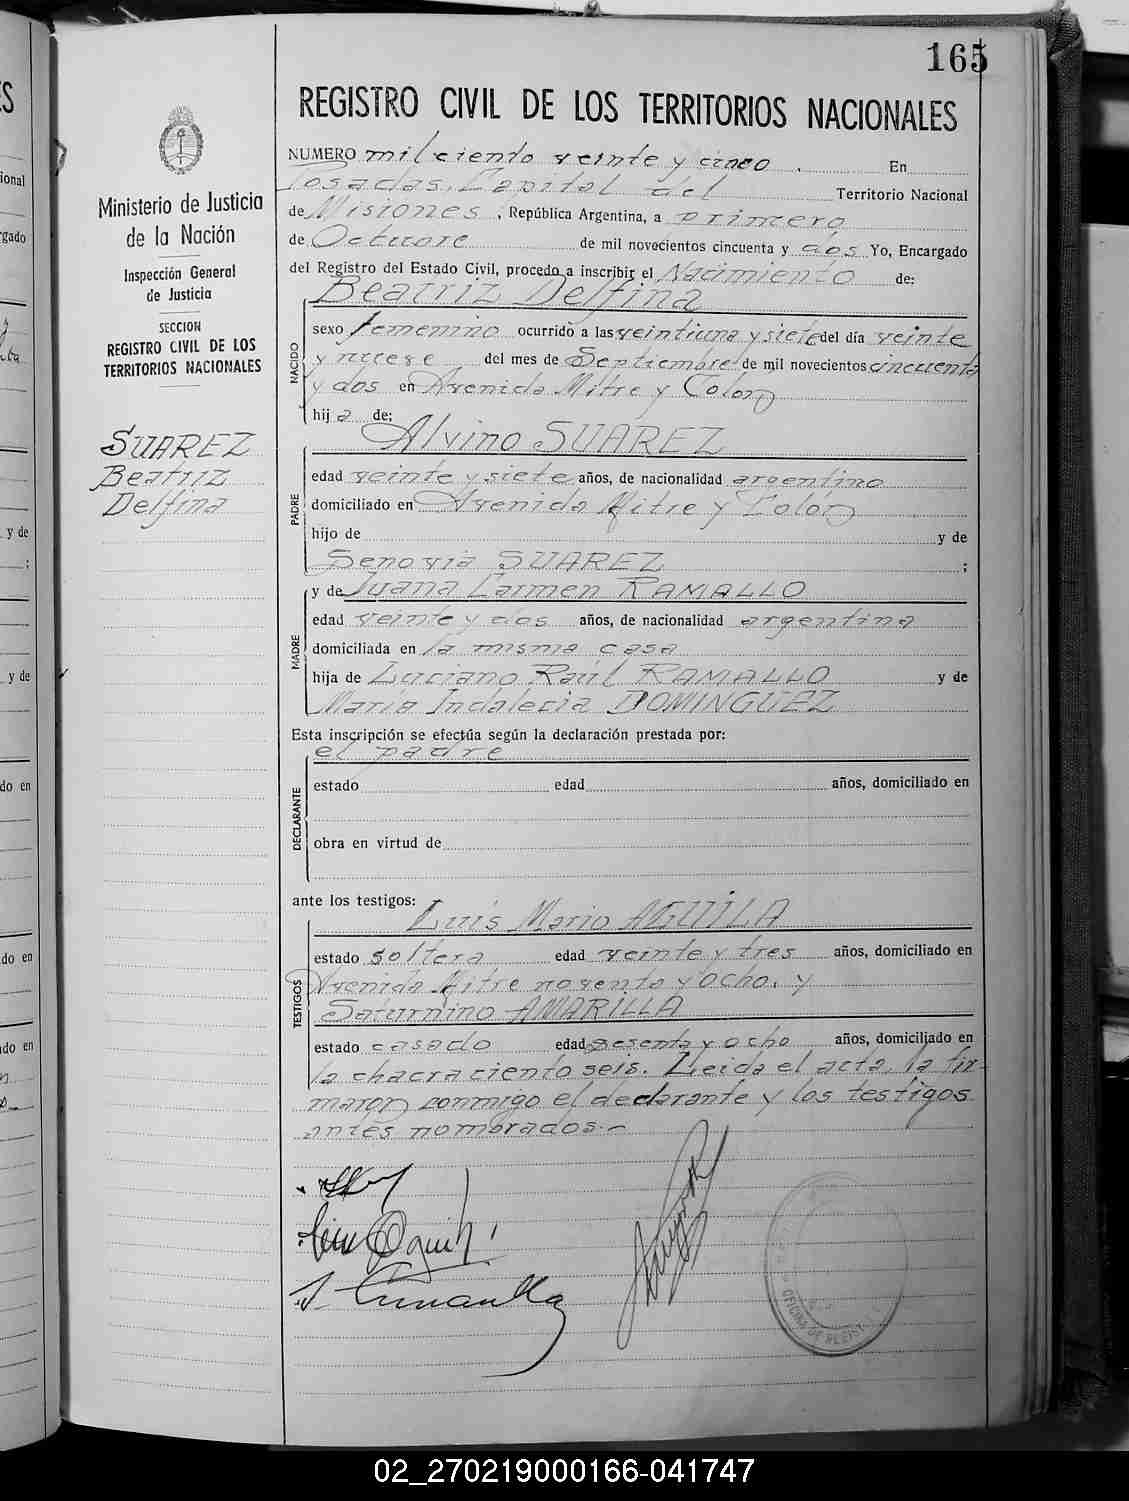 165
REGISTRO CIVIL DE LOS TERRITORIOS NACIONALES
Ministerio de Justicia
de la Nación
Inspección General
de Justicia
SECCION
REGISTRO CIVIL DE LOS
TERRITORIOS NACIONALES
SUAREZ
Beatriz
Delfina
NUMERO mil ciento veinte y cinco . En
Posadas, Capital del Territorio Nacional
de Misiones , República Argentina, a primero
de Octubre de mil novecientos cincuenta y dos Yo, Encargado
del Registro del Estado Civil, procedo a inscribir el Nacimiento de:
Beatriz Delfina
NACIDO
sexo femenino ocurrido a las veintiuna y siete del día veinte
y nueve del mes de Septiembre de mil novecientos cincuenta
y dos en Avenida Mitre y Colon
hija de:
Alvino SUAREZ
PADRE
edad veinte y siete años, de nacionalidad argentino
domiciliado en Avenida Mitre y Colon
hijo de y de
Senovia SUAREZ ;
y de Juana Carmen RAMALLO
MADRE
edad veinte y dos años, de nacionalidad argentina
domiciliada en la misma casa
hija de Luciano Raúl RAMALLO y de
María Indalecia DOMINGUEZ
Esta inscripción se efectúa según la declaración prestada por:
el padre
DECLARANTE
estado edad años, domiciliado en
obra en virtud de
ante los testigos:
Luis Mario AGUILA
TESTIGOS
estado soltero edad veinte y tres años, domiciliado en
Avenida Mitre noventa y ocho, y
Saturnino AMARILLA
estado casado edad sesenta y ocho años, domiciliado en
la chacra ciento seis. Leida el acta, la fir-
maron conmigo el declarante y los testigos
antes nombrados.-
OFICINA DE
02_270219000166-041747